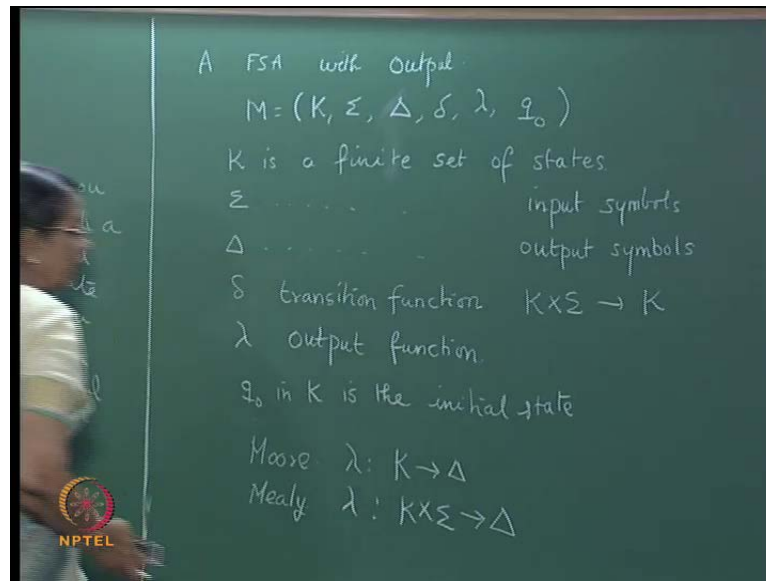 A FSA with output.
M = (K, Σ, Δ, δ, λ, q₀)
K is a finite set of states.
Σ ..... . input symbols
Δ ..... . output symbols
δ transition function K×Σ → K
λ output function.
q₀ in K is the initial state
Moore λ: K → Δ
Mealy λ: K×Σ → Δ
NPTEL